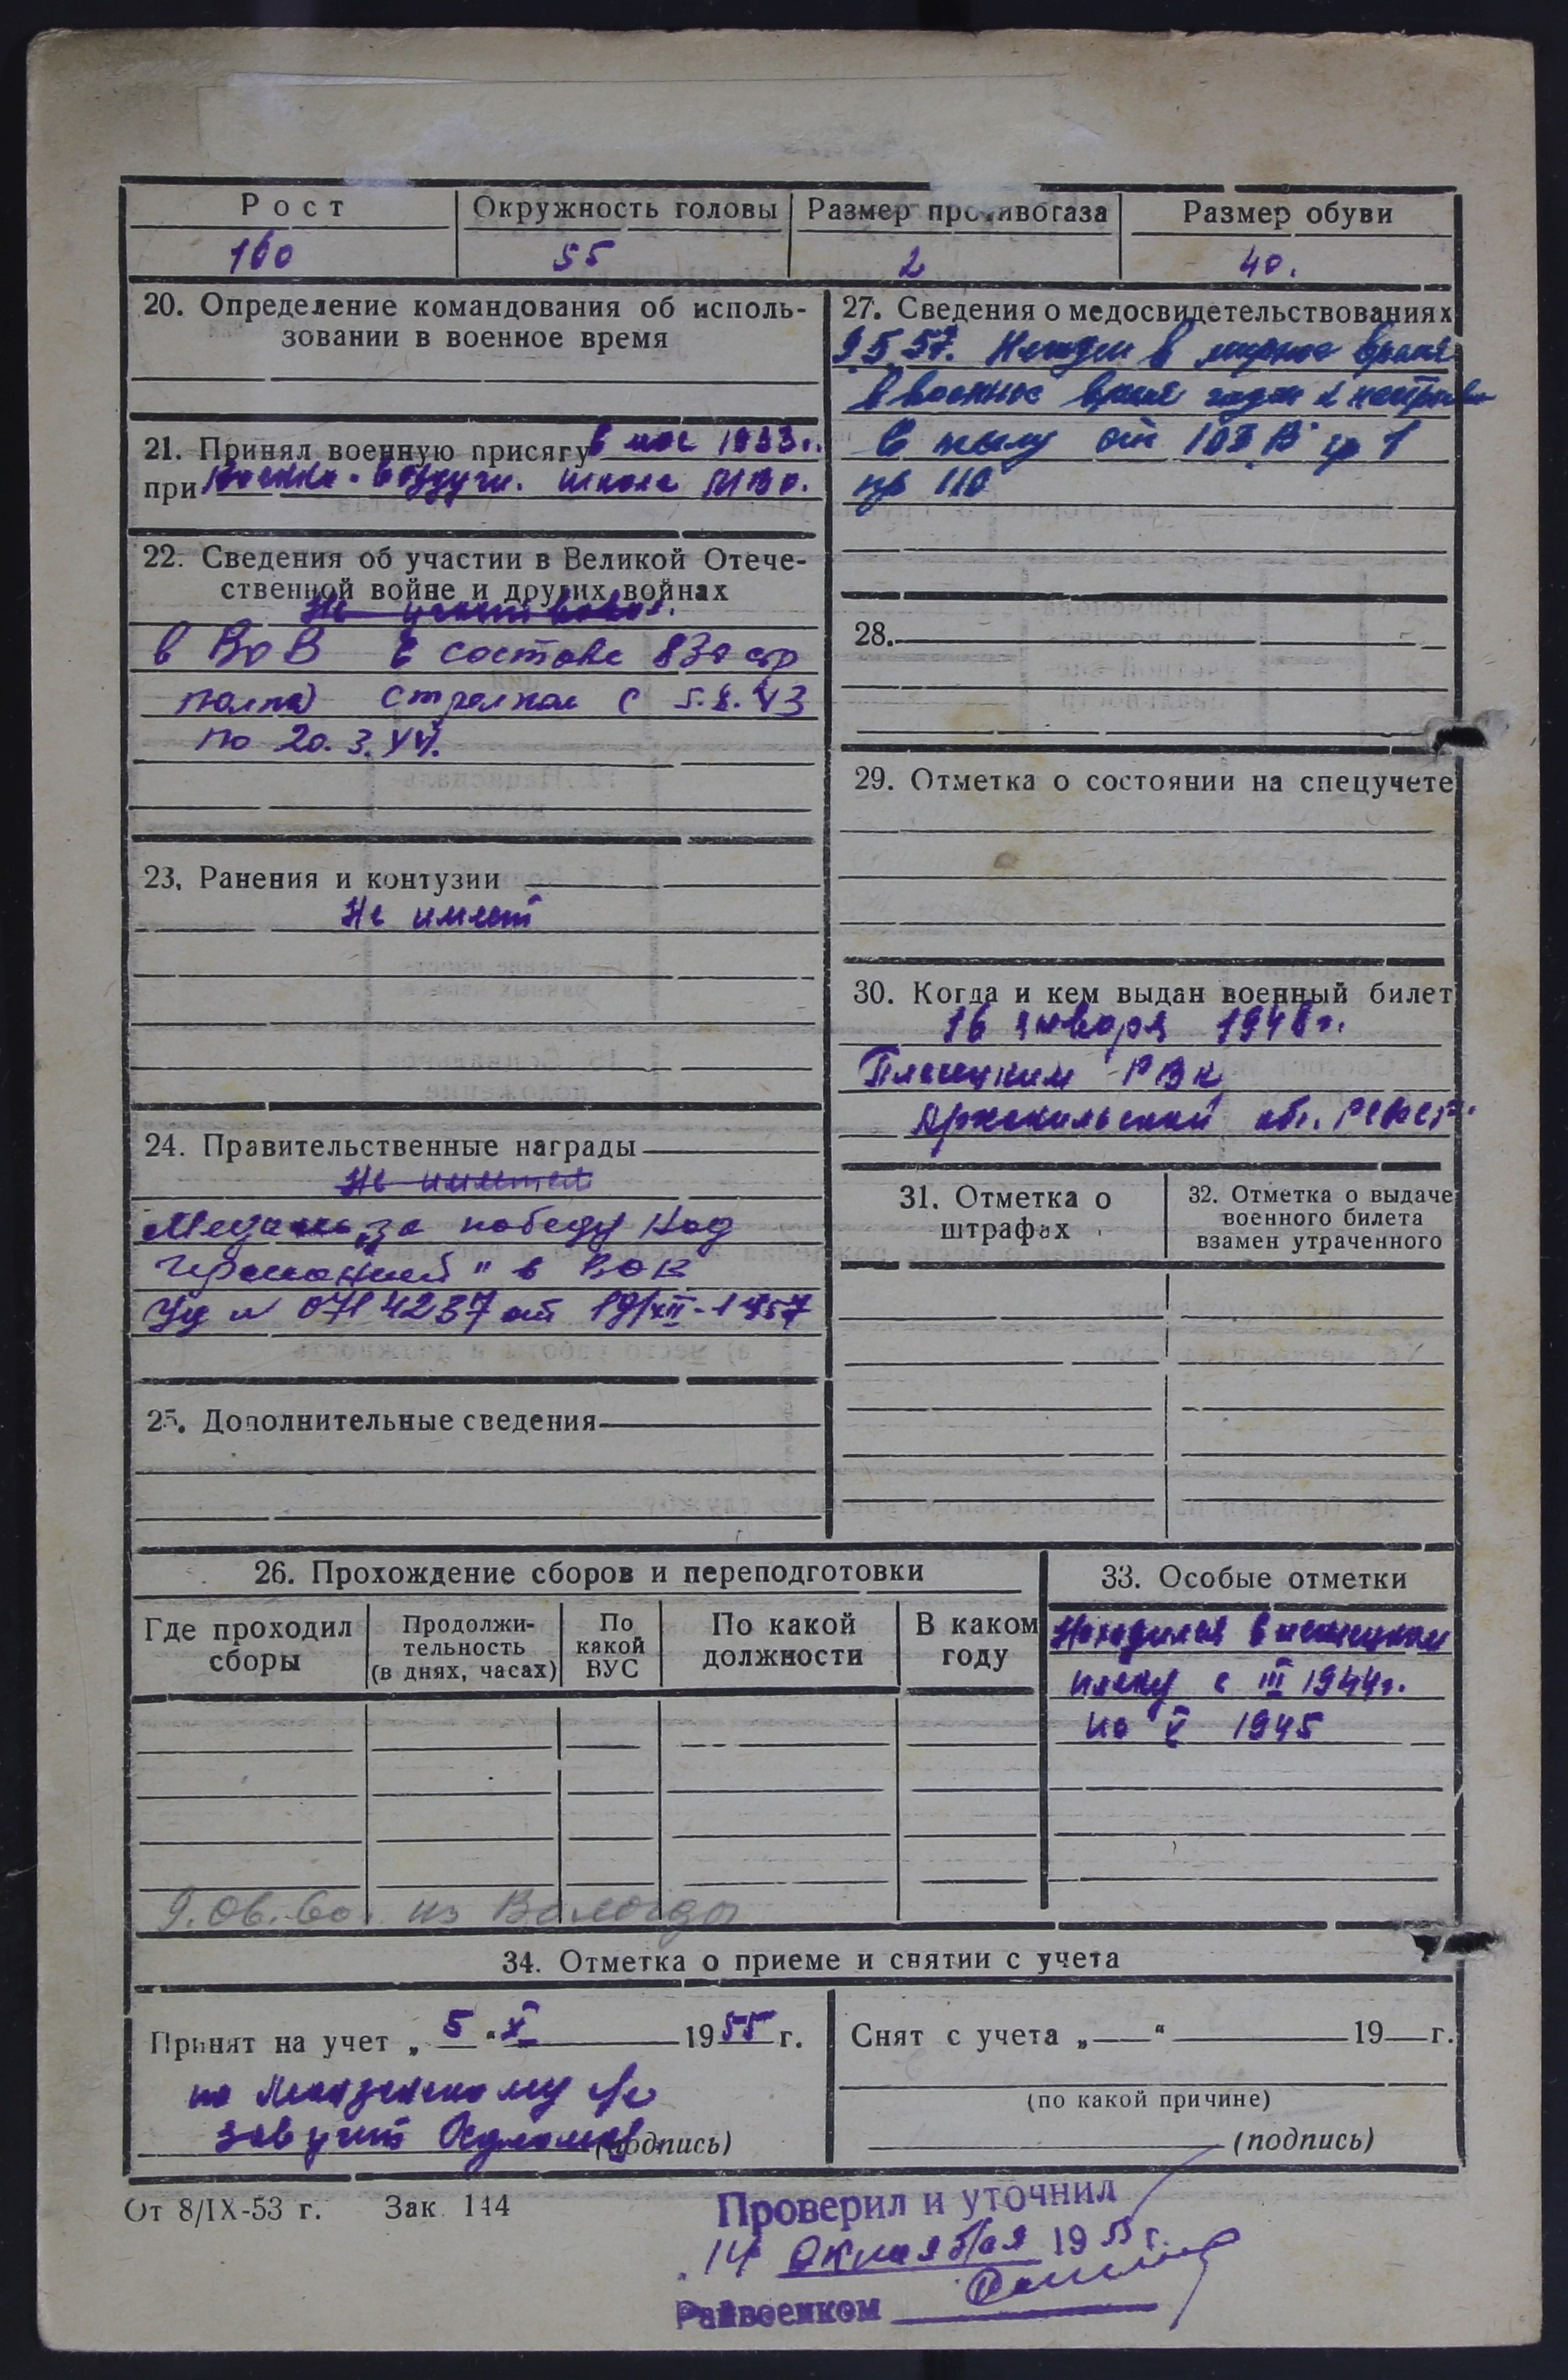 Рост
Окружность головы
Размер противогаза
Размер обуви
160
55
2
40.
20. Определение командования об исполь-
зовании в военное время
21. Принял военную присягу в мае 1933 г.
при Военно-воздушн. школе
22. Сведения об участии в Великой Отече-
ственной войне и других войнах
Не участвовал.
в ВОВ в составе 830 стр
полка стрелком с 5.X.43
по 20.3.44.
23. Ранения и контузии
Не имеет
24. Правительственные награды
Не имеет
Медаль „за победу над
Германией" в ВОВ
Уд № 0714237 от 19/XII-1957
25. Дополнительные сведения
27. Сведения о медосвидетельствованиях
9.5.57. Негоден в мирное время
в военное время годен к нестроевой
в тылу от
пр 110
28.
29. Отметка о состоянии на спецучете
30. Когда и кем выдан военный билет
16 января 1948 г.
Плесецким РВК
Архангельской обл. РСФСР.
31. Отметка о
штрафах
32. Отметка о выдаче
военного билета
взамен утраченного
26. Прохождение сборов и переподготовки
Где проходил
сборы
Продолжи-
тельность
(в днях, часах)
По
какой
ВУС
По какой
должности
В каком
году
9.06.60. из Вологды
33. Особые отметки
Находился в немецком
плену с III 1944 г.
по V 1945
34. Отметка о приеме и снятии с учета
Принят на учет „ 5 " X 1955 г.
по
зав учет
(подпись)
Снят с учета „ " 19 г.
(по какой причине)
(подпись)
От 8/IX-53 г. Зак. 144
Проверил и уточнил
14 октября 1955 г.
Райвоенком